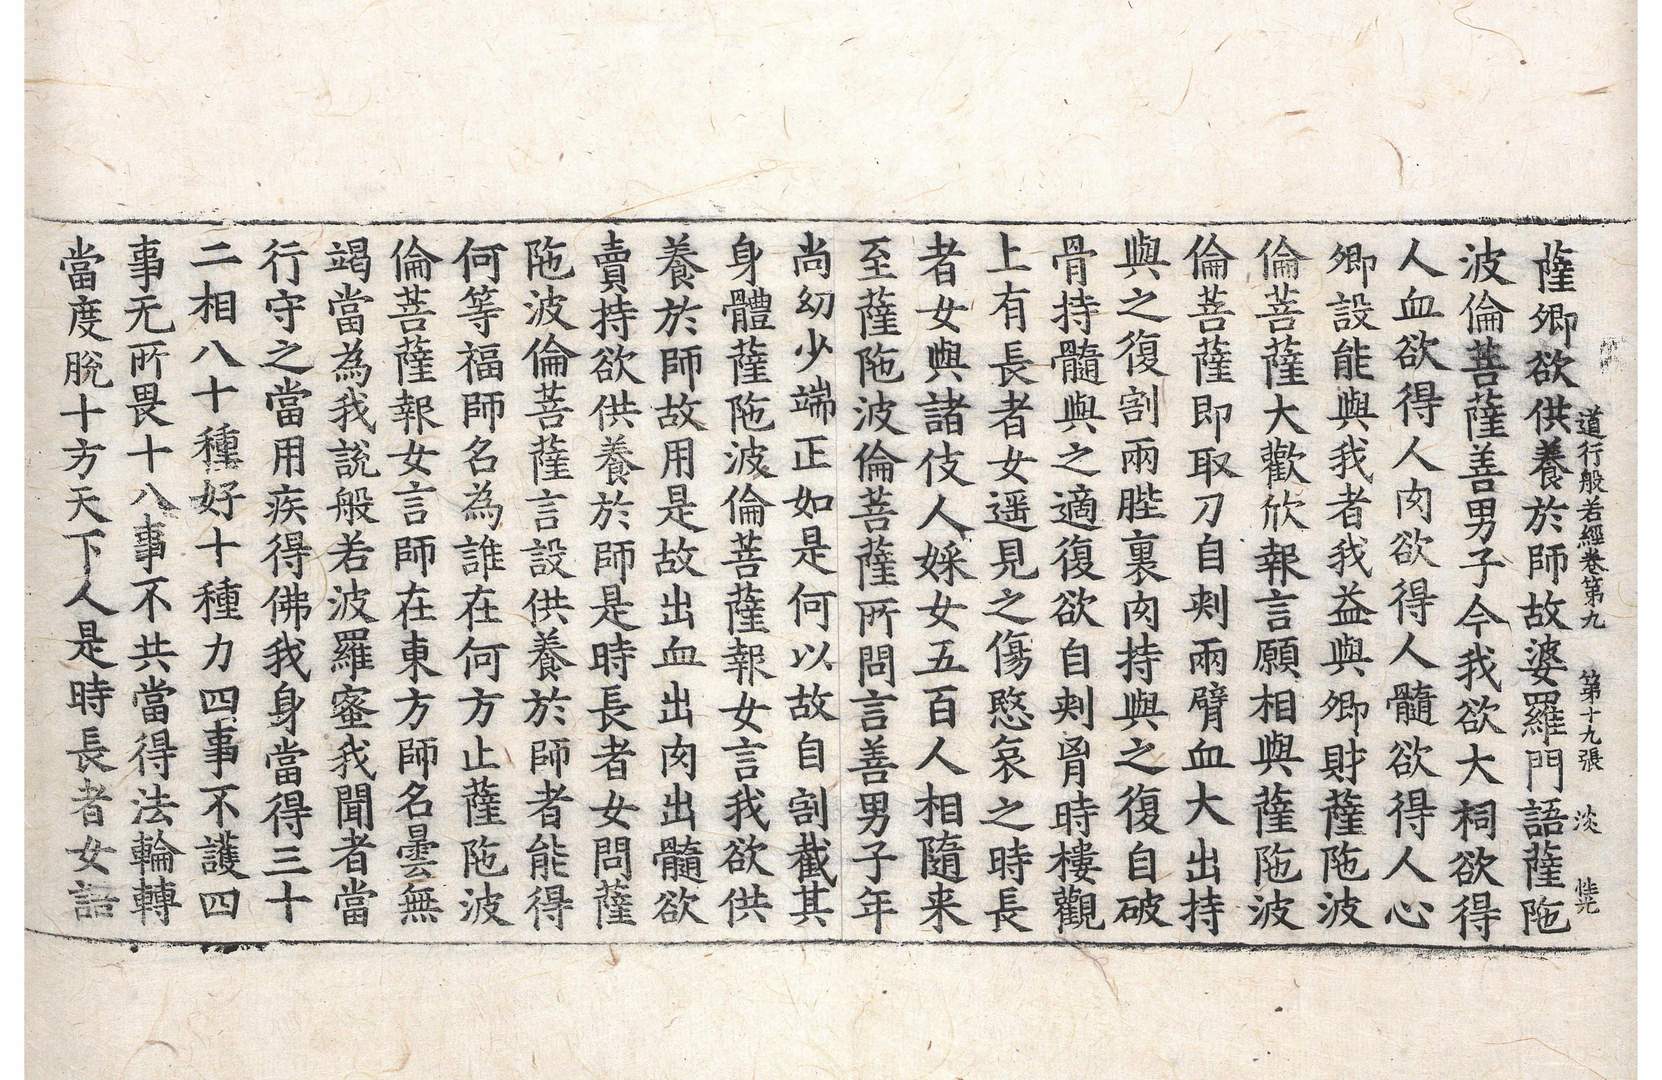 道行般若經卷第九 第十九張 淡
薩卿欲供養於師故婆羅門語薩陁
波倫菩薩善男子今我欲大祠欲得
人血欲得人肉欲得人髓欲得人心
卿設能與我者我益與卿財薩陁波
倫菩薩大歡欣報言願相與薩陁波
倫菩薩即取刀自刾兩臂血大出持
與之復割兩䏶裏肉持與之復自破
骨持髓與之適復欲自刾胷時樓觀
上有長者女遥見之傷愍哀之時長
者女與諸伎人婇女五百人相隨来
至薩陁波倫菩薩所問言善男子年
尚幼少端正如是何以故自割截其
身體薩陁波倫菩薩報女言我欲供
養於師故用是故出血出肉出髓欲
賣持欲供養於師是時長者女問薩
陁波倫菩薩言設供養於師者能得
何等福師名為誰在何方止薩陁波
倫菩薩報女言師在東方師名曇無
竭當為我說般若波羅蜜我聞者當
行守之當用疾得佛我身當得三十
二相八十種好十種力四事不護四
事无所畏十八事不共當得法輪轉
當度脫十方天下人是時長者女語